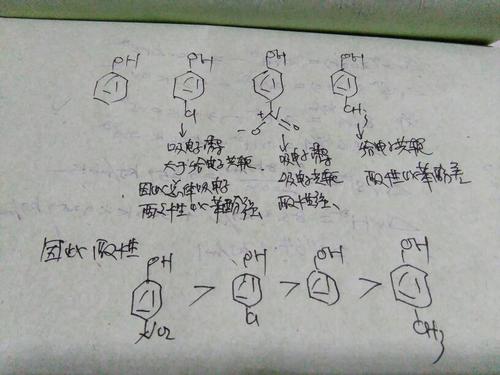 OH OH OH OH
Cl + N CH3
-O O
吸电子诱导 吸电子诱导 给电子共轭
大于给电子共轭 吸电子共轭 酸性比苯酚差
因此总体吸电子 酸性强
酸性比苯酚强
因此酸性
OH > OH > OH > OH
NO2 Cl CH3